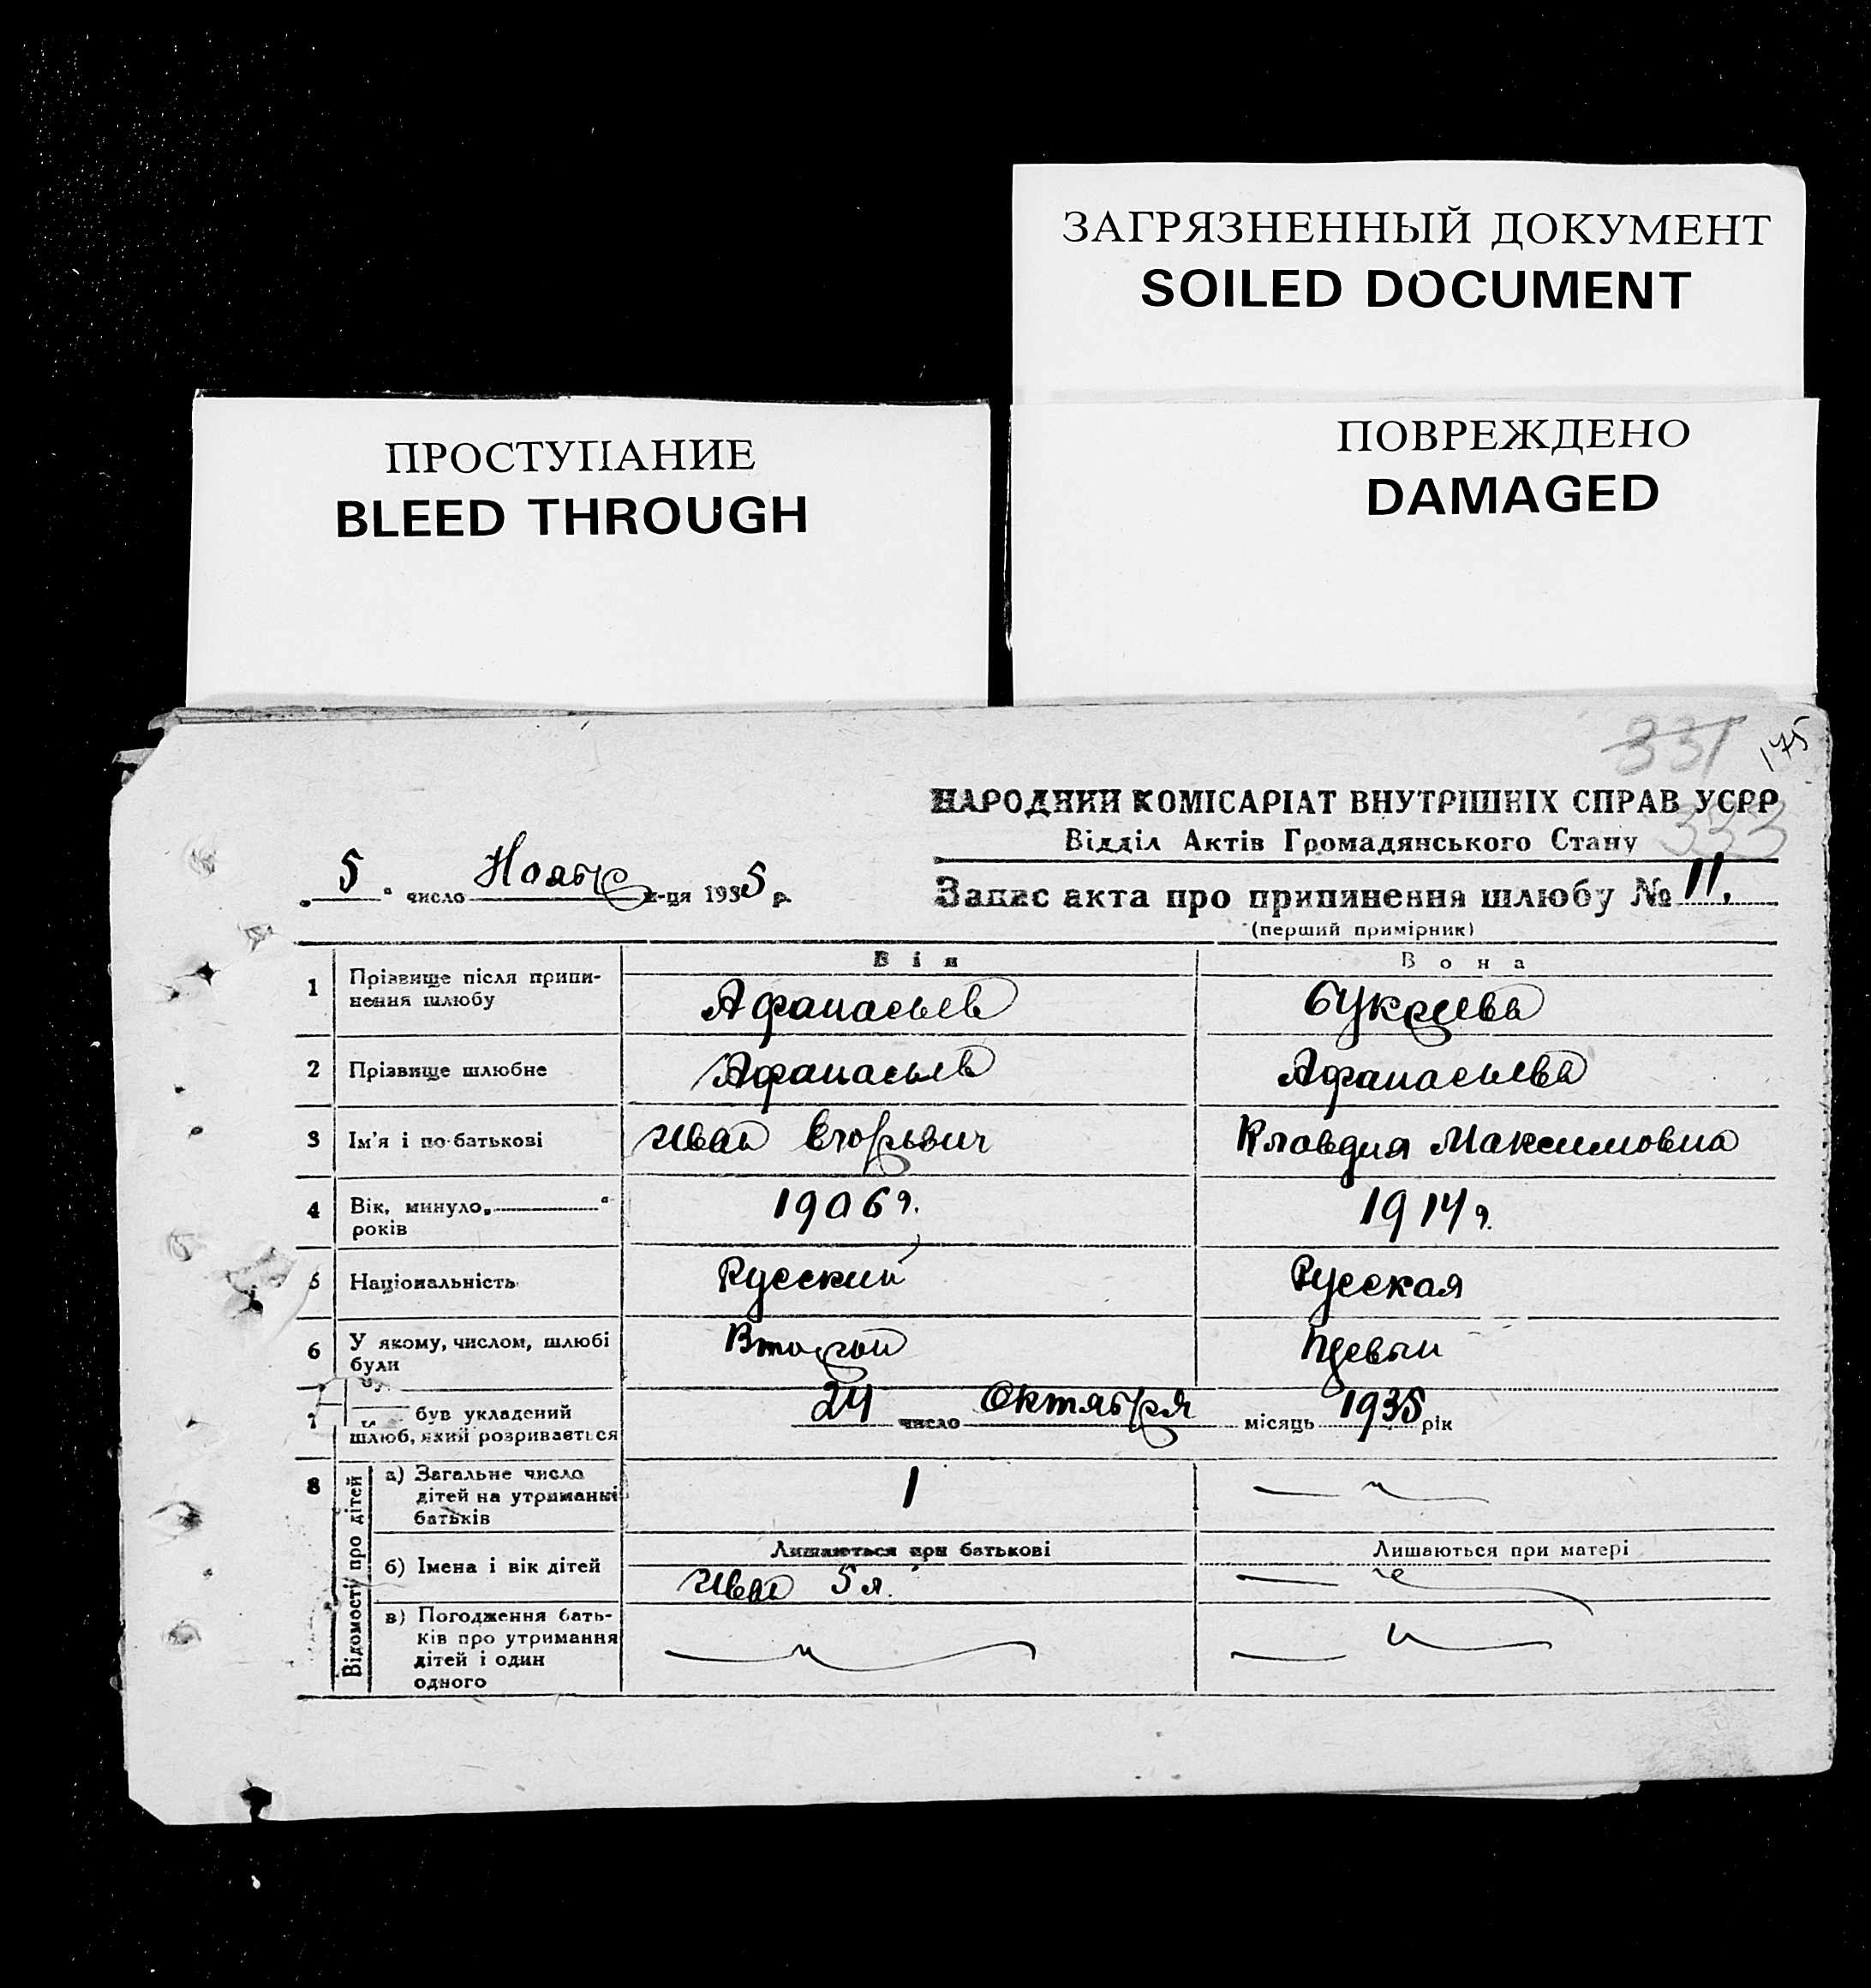 ЗАГРЯЗНЕННЫЙ ДОКУМЕНТ
SOILED DOCUMENT
ПРОСТУПАНИЕ
BLEED THROUGH
ПОВРЕЖДЕНО
DAMAGED
331
175
НАРОДНИЙ КОМІСАРІАТ ВНУТРІШНІХ СПРАВ УСРР
333
Відділ Актів Громадянського Стану
„5“ число Ноябр м-ця 1935 р.
Запис акта про припинення шлюбу № 11.
(перший примірник)
Він
Вона
1
Прізвище після припи-
нення шлюбу
Афанасьев
2
Прізвище шлюбне
Афанасьев
Афанасьева
3
Ім'я і по-батькові
Иван Егорьвич
Клавдия Максимовна
4
Вік, минуло „ “
років
1906 г.
1914 г.
5
Національність
Русский
Русская
6
У якому, числом, шлюбі
були
Второй
Первый
7
був укладений
шлюб, який розривається
24 число Октября місяць 1935 рік
8
Відомості про дітей
а) Загальне число
дітей на утриманні
батьків
1
б) Імена і вік дітей
Лишаються при батькові
Лишаються при матері
Иван 5 л.
в) Погодження бать-
ків про утримання
дітей і один
одного